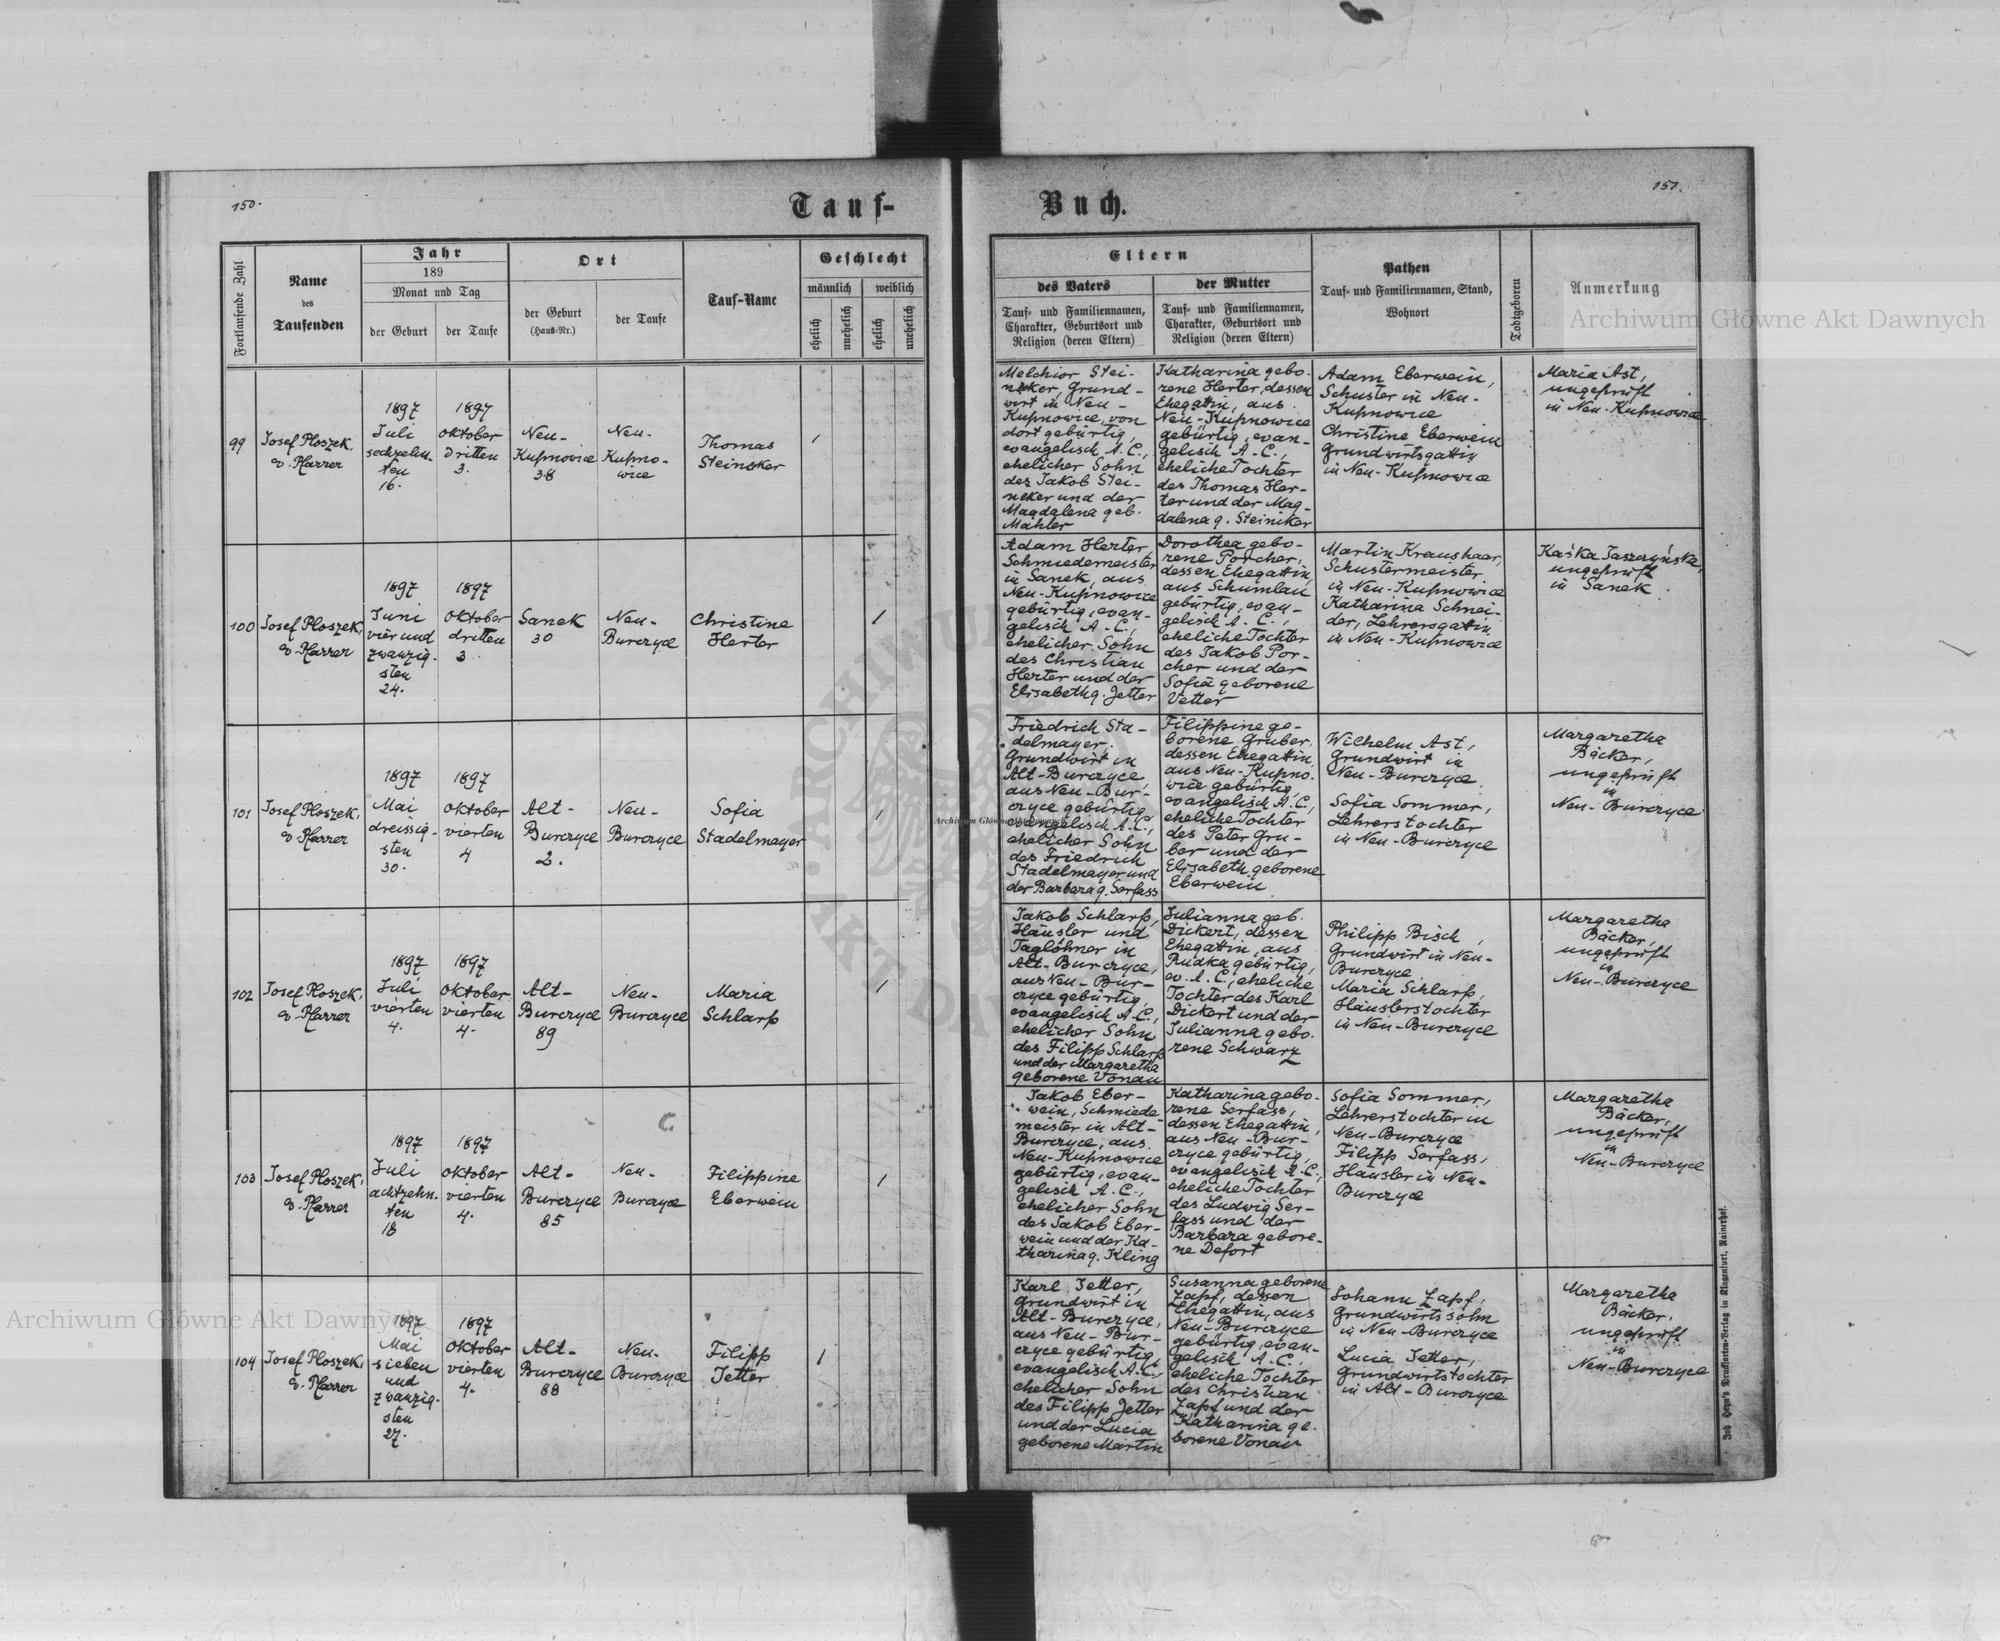 150.
Tauf-
Buch.
151.
Fortlaufende Zahl
Name
des
Taufenden
Jahr
189
Monat und Tag
der Geburt
der Taufe
Ort
der Geburt
(Haus-Nr.)
der Taufe
Tauf-Name
Geschlecht
männlich
weiblich
ehelich
unehelich
ehelich
unehelich
Eltern
des Vaters
Tauf- und Familiennamen,
Charakter, Geburtsort und
Religion (deren Eltern)
der Mutter
Tauf- und Familiennamen,
Charakter, Geburtsort und
Religion (deren Eltern)
Pathen
Tauf- und Familiennamen, Stand,
Wohnort
Todtgeboren
Anmerkung
99
Josef Ploszek,
ev. Pfarrer
1897
Juli
sechzehn-
ten
16.
1897
Oktober
dritten
3.
Neu-
Kupnowice
38
Neu-
Kupno-
wice
Thomas
Steineker
1
Melchior Stei-
neker, Grund-
wirt in Neu-
Kupnowice, von
dort gebürtig,
evangelisch A. C.,
ehelicher Sohn
des Jakob Stei-
neker und der
Magdalena geb.
Mahler
Katharina gebo-
rene Herter, dessen
Ehegattin, aus
Neu-Kupnowice
gebürtig, evan-
gelisch A. C.,
eheliche Tochter
des Thomas Her-
ter und der Mag-
dalena g. Steiniker
Adam Eberwein,
Schuster in Neu-
Kupnowice
Christine Eberwein
Grundwirtsgattin
in Neu-Kupnowice
Maria Ast,
ungeprüft
in Neu-Kupnowice
100
Josef Ploszek,
ev. Pfarrer
1897
Juni
vier und
zwanzig-
sten
24.
1897
Oktober
dritten
3
Sanek
30
Neu-
Burczyce
Christine
Herter
1
Adam Herter,
Schmiedemeister
in Sanek, aus
Neu-Kupnowice
gebürtig, evan-
gelisch A. C.,
ehelicher Sohn
des Christian
Herter und der
Elisabeth g. Jetter
Dorothea gebo-
rene Porcher,
dessen Ehegattin,
aus Schumlau
gebürtig, evan-
gelisch A. C.,
eheliche Tochter
des Jakob Por-
cher und der
Sofia geborene
Vetter
Martin Kraushaar,
Schustermeister
in Neu-Kupnowice
Katharina Schnei-
der, Lehrersgattin
in Neu-Kupnowice
Kaśka Jaszczyńska,
ungeprüft
in Sanek
101
Josef Ploszek,
ev. Pfarrer
1897
Mai
dreissig-
sten
30.
1897
Oktober
vierten
4
Alt-
Burczyce
2.
Neu-
Burczyce
Sofia
Stadelmayer
1
Friedrich Sta-
delmayer,
Grundwirt in
Alt-Burczyce,
aus Neu-Bur-
czyce gebürtig,
evangelisch A. C.,
ehelicher Sohn
des Friedrich
Stadelmayer und
der Barbara g. Serfass
Filippine ge-
borene Gruber,
dessen Ehegattin,
aus Neu-Kupno-
wice gebürtig,
evangelisch A. C.,
eheliche Tochter
des Peter Gru-
ber und der
Elisabeth geborene
Eberwein
Wilhelm Ast,
Grundwirt in
Neu-Burczyce
Sofia Sommer,
Lehrerstochter
in Neu-Burczyce
Margaretha
Bäcker,
ungeprüft
in
Neu-Burczyce
102
Josef Ploszek,
ev. Pfarrer
1897
Juli
vierten
4.
1897
Oktober
vierten
4.
Alt-
Burczyce
89
Neu-
Burczyce
Maria
Schlarp
1
Jakob Schlarp,
Häusler und
Taglöhner in
Alt-Burczyce,
aus Neu-Bur-
czyce gebürtig,
evangelisch A. C.,
ehelicher Sohn
des Filipp Schlarp
und der Margaretha
geborene Vonau
Julianna geb.
Dickert, dessen
Ehegattin, aus
Rudka gebürtig,
ev. A. C., eheliche
Tochter des Karl
Dickert und der
Julianna gebo-
rene Schwarz
Philipp Bisch,
Grundwirt in Neu-
Burczyce
Maria Schlarp,
Häuslerstochter
in Neu-Burczyce
Margaretha
Bäcker,
ungeprüft
in
Neu-Burczyce
103
Josef Ploszek,
ev. Pfarrer
1897
Juli
achtzehn-
ten
18
1897
Oktober
vierten
4.
Alt-
Burczyce
85
Neu-
Burczyce
Filippine
Eberwein
1
Jakob Eber-
wein, Schmiede-
meister in Alt-
Burczyce, aus
Neu-Kupnowice
gebürtig, evan-
gelisch A. C.,
ehelicher Sohn
des Jakob Eber-
wein und der Ka-
tharina g. Kling
Katharina gebo-
rene Serfass,
dessen Ehegattin,
aus Neu-Bur-
czyce gebürtig,
evangelisch A. C.,
eheliche Tochter
des Ludwig Ser-
fass und der
Barbara gebore-
ne Defort
Sofia Sommer,
Lehrerstochter in
Neu-Burczyce
Filipp Serfass,
Häusler in Neu-
Burczyce
Margaretha
Bäcker,
ungeprüft
in
Neu-Burczyce
104
Josef Ploszek,
ev. Pfarrer
1897
Mai
sieben
und
zwanzig-
sten
27.
1897
Oktober
vierten
4.
Alt-
Burczyce
88
Neu-
Burczyce
Filipp
Jetter
1
Karl Jetter,
Grundwirt in
Alt-Burczyce,
aus Neu-Bur-
czyce gebürtig,
evangelisch A. C.,
ehelicher Sohn
des Filipp Jetter
und der Lucia
geborene Martin
Susanna geborene
Zapf, dessen
Ehegattin, aus
Neu-Burczyce
gebürtig, evan-
gelisch A. C.,
eheliche Tochter
des Christian
Zapf und der
Katharina ge-
borene Vonau
Johann Zapf,
Grundwirtssohn
in Neu-Burczyce
Lucia Jetter,
Grundwirtstochter
in Alt-Burczyce
Margaretha
Bäcker,
ungeprüft
in
Neu-Burczyce
Archiwum Główne Akt Dawnych
Archiwum Główne Akt Dawnych
Archiwum Główne Akt Dawnych